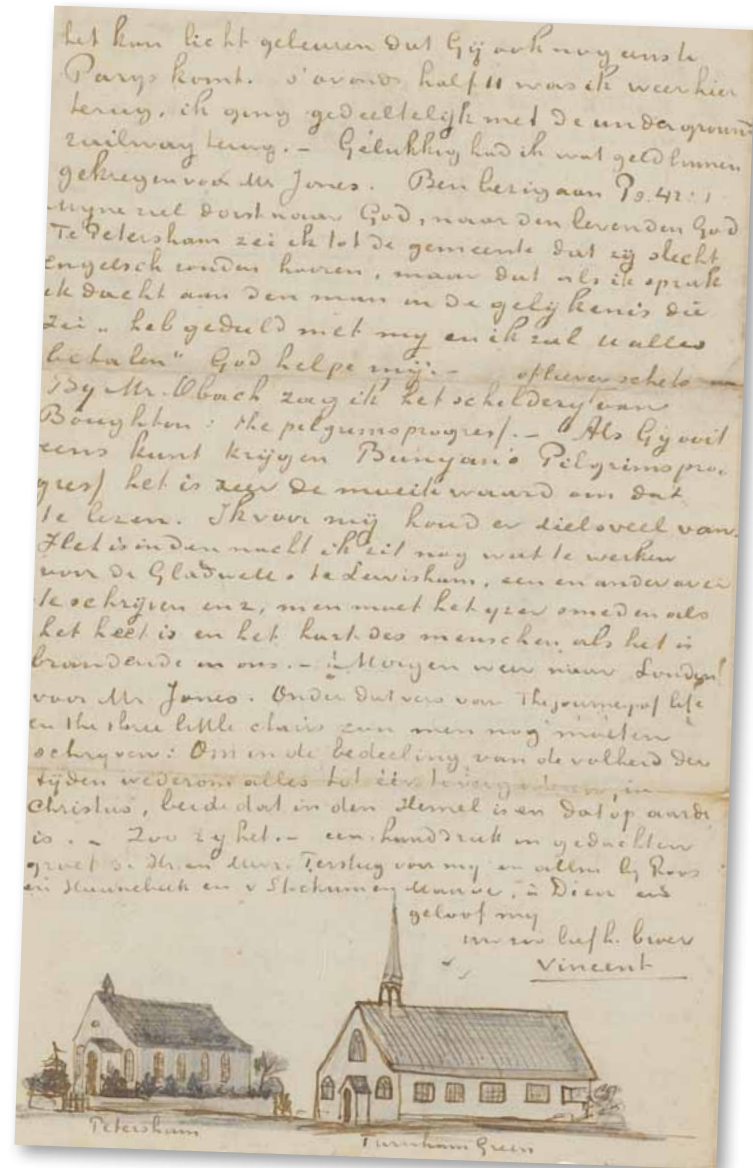 het kan licht gebeuren dat Gij ook nog eens te
Parys komt. s'avonds half 11 was ik weer hier
terug, ik ging gedeeltelijk met de underground
railway terug. – Gelukkig had ik wat geld binnen
gekregen voor Mr Jones. Ben bezig aan Ps. 42:1
Myne ziel dorst naar God, naar den levenden God
Te Petersham zei ik tot de gemeente dat zy slecht
Engelsch zouden hooren, maar dat als ik sprak
ik dacht aan den man in de gelykenis die
zei „heb geduld met my en ik zal u alles
betalen" God helpe mij. –
By Mr. Obach zag ik het schildery van
Boughton: the pilgrimsprogress. – Als Gy ooit
eens kunt krijgen Bunyan's Pilgrimspro-
gress het is zeer de moeite waard om dat
te lezen. Ik voor mij houd er zielsveel van.
Het is in den nacht ik zit nog wat te werken
voor de Gladwells te Lewisham, een en ander over
te schrijven enz, men moet het yzer smeden als
het heet is en het hart des menschen als het is
brandende in ons. – Morgen weer naar Londen
voor Mr Jones. Onder dat vers van The journey of life
en the three little chairs zou men nog moeten
schryven: Om in de bedeeling van de volheid der
tijden wederom alles tot één te vergaderen, in
Christus, beide dat in den Hemel is en dat op aarde
is. – Zoo zy het. – een handdruk in gedachten
groet Mr. en Mevr. Tersteeg van my en allen by Roos
en Haanebeek en v Stockum en Mauve, à Dieu en
geloof my
uw zoo liefh. broer
Vincent
Petersham
Turnham Green